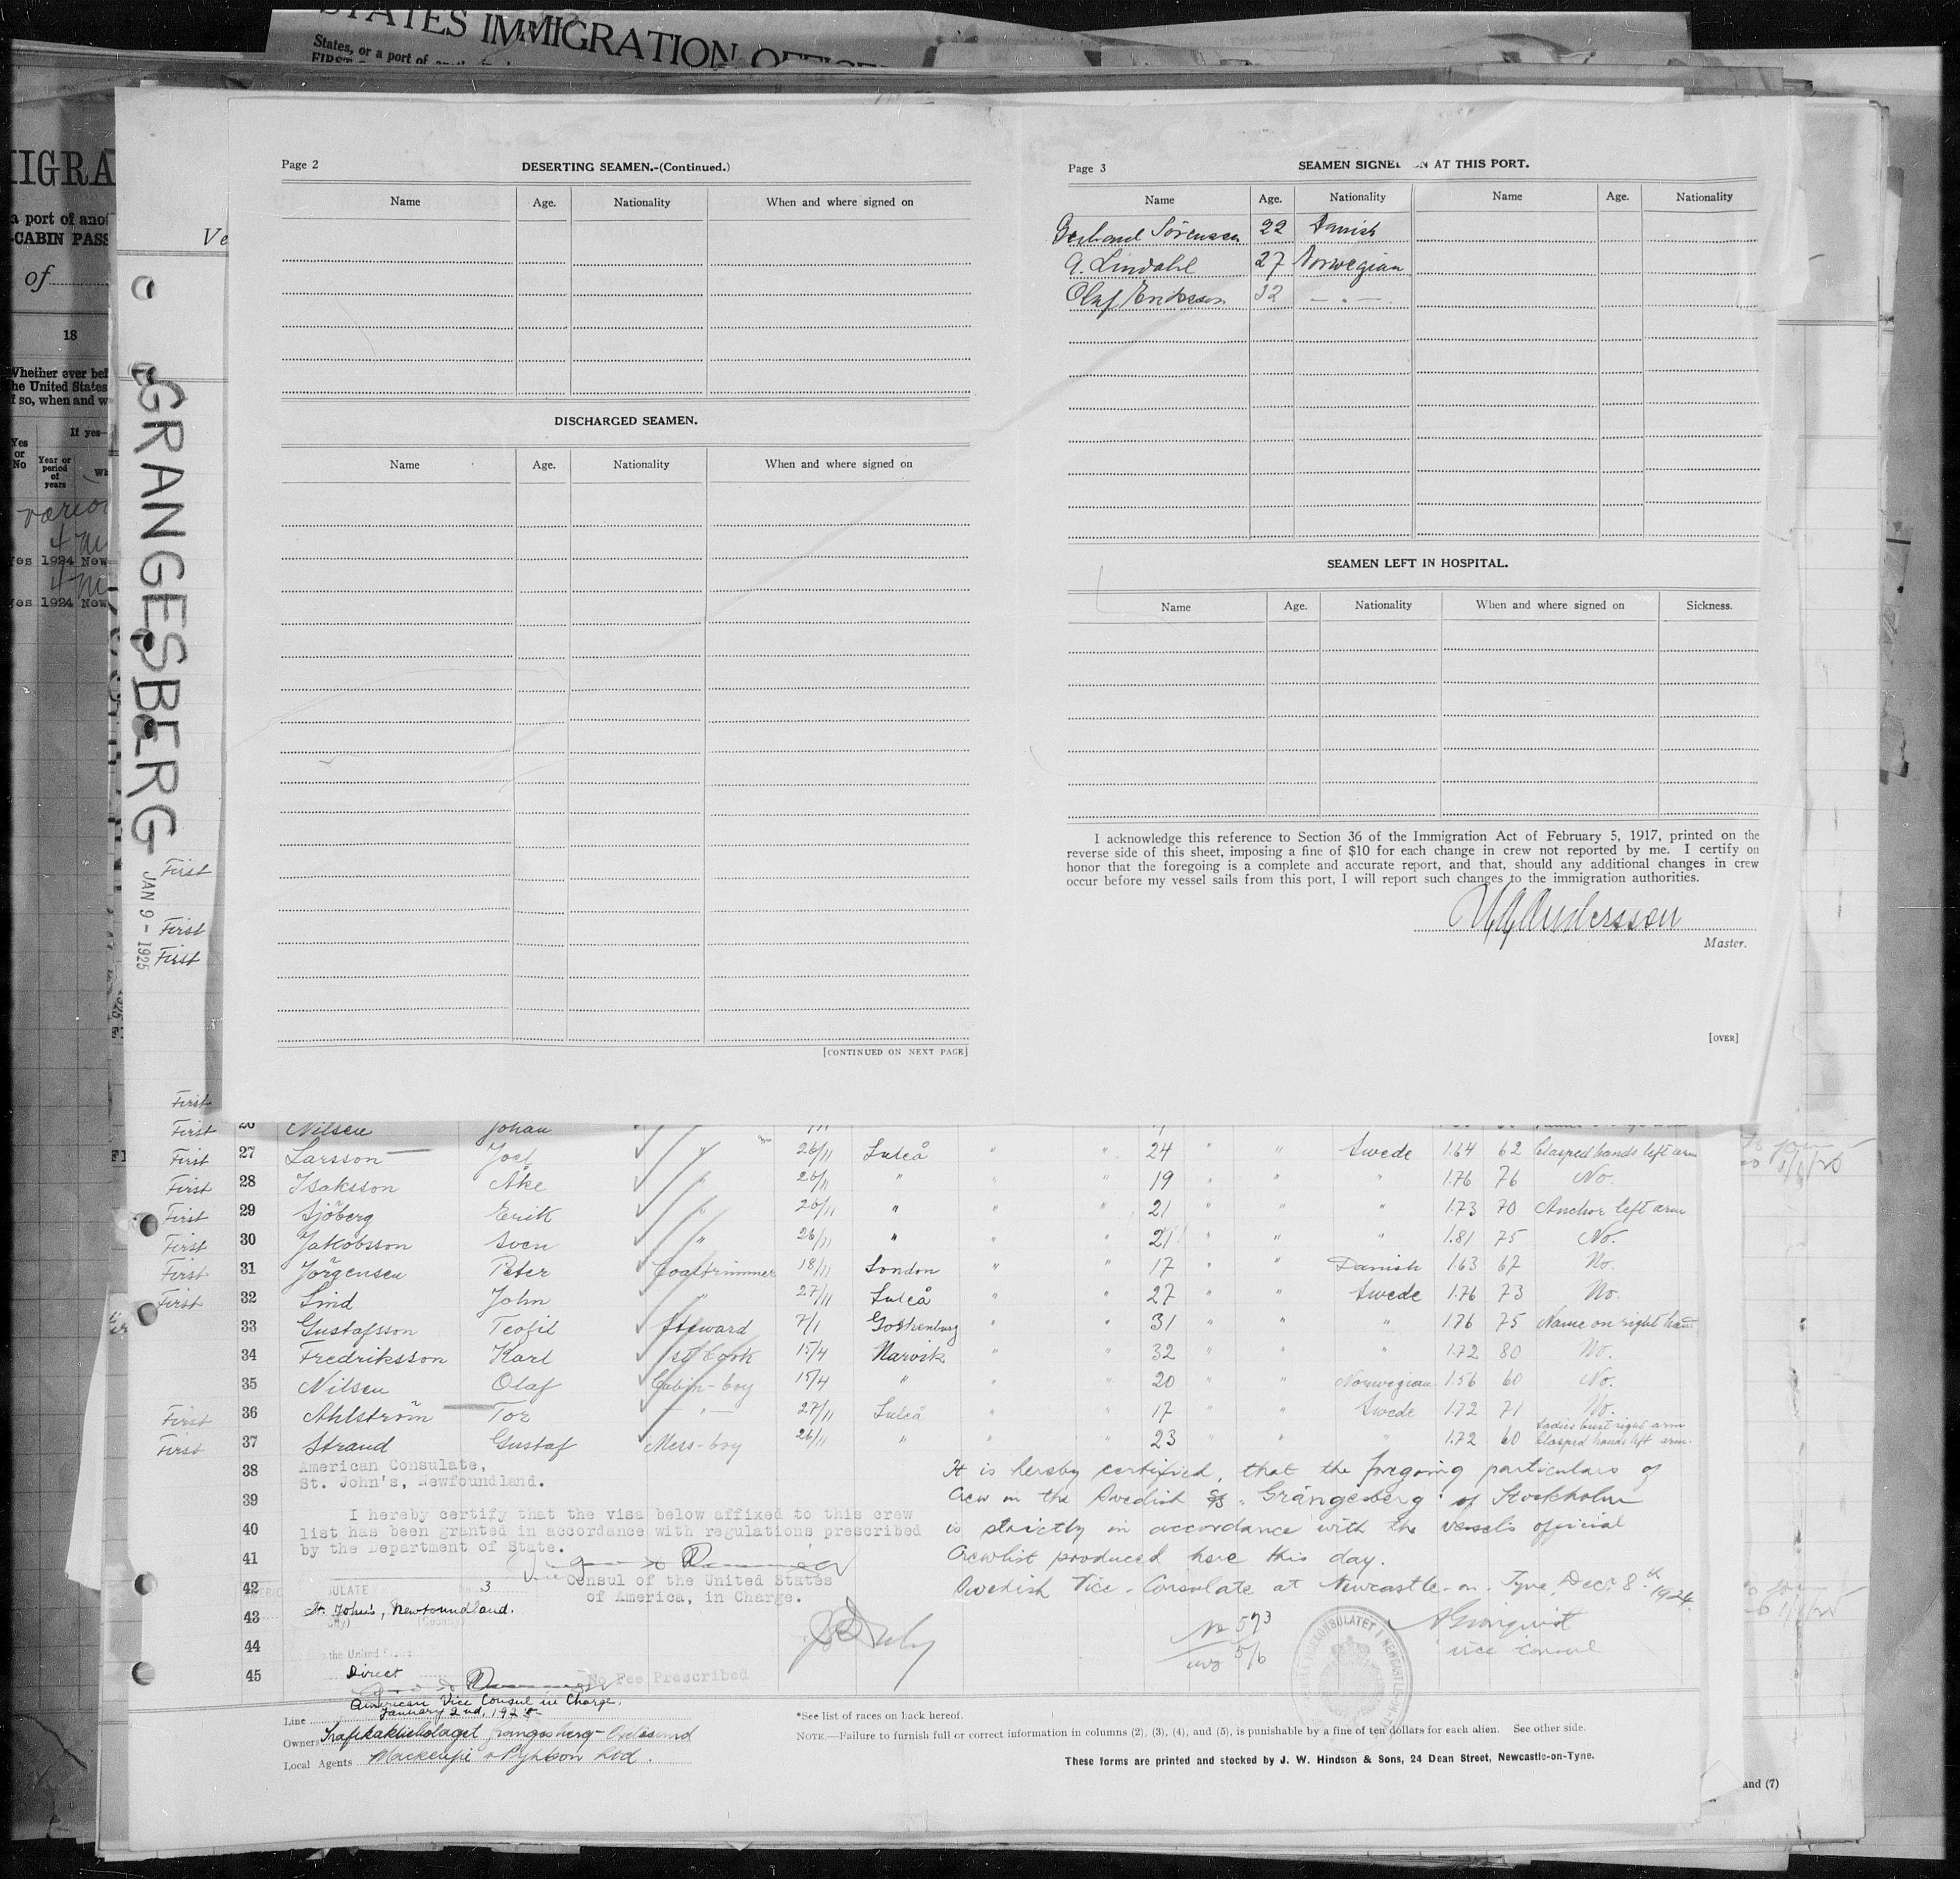 STATES IMMIGRATION OFFICE
States, or a port of
IIGRA
a port of ano
-CABIN PASS
of
18
Whether ever bef
he United States
f so, when and w
If yes—
Yes or No
Year or period of years
Wh
Yes 1924 New
Yes 1924 New
Ve
GRANGESBERG
JAN 9 - 1925
Page 2
DESERTING SEAMEN.-(Continued.)
Name Age. Nationality When and where signed on
DISCHARGED SEAMEN.
Name Age. Nationality When and where signed on
[CONTINUED ON NEXT PAGE]
Page 3
SEAMEN SIGNED ON AT THIS PORT.
Name Age. Nationality Name Age. Nationality
Sörensen 22 Danish
A. Lindahl 27 Norwegian
Olaf Eriksson 32 — " —
SEAMEN LEFT IN HOSPITAL.
Name Age. Nationality When and where signed on Sickness.
I acknowledge this reference to Section 36 of the Immigration Act of February 5, 1917, printed on the
reverse side of this sheet, imposing a fine of $10 for each change in crew not reported by me. I certify on
honor that the foregoing is a complete and accurate report, and that, should any additional changes in crew
occur before my vessel sails from this port, I will report such changes to the immigration authorities.
Andersson
Master.
[OVER]
First
First
First
First
First 26 Nilsen Johan
First 27 Larsson Joel " 26/11 Luleå " " 24 " " Swede 1.64 62 Clasped hands left arm
First 28 Isaksson Åke " 26/11 " " " 19 " " " 1.76 76 No.
First 29 Sjöberg Erik " 26/11 " " " 21 " " " 1.73 70 Anchor left arm
First 30 Jakobsson Sven " 26/11 " " " 21 " " " 1.81 75 No.
First 31 Jörgensen Peter Coaltrimmer 18/11 London " " 17 " " Danish 1.63 67 No.
First 32 Lind John " 27/11 Luleå " " 27 " " Swede 1.76 73 No.
33 Gustafsson Teofil Steward 7/1 Gothenburg " " 31 " " " 1.76 75 Name on right hand
34 Fredriksson Karl 1st Cook 15/4 Narvik " " 32 " " " 1.72 80 No.
35 Nilsen Olaf Cabin-boy 15/4 " " " 20 " " Norwegian 1.56 60 No.
First 36 Ahlström Tor — " — 27/11 Luleå " " 17 " " Swede 1.72 71 No.
First 37 Strand Gustaf Mess-boy 26/11 " " " 23 " " " 1.72 60 Ladies bust right arm
Clasped hands left arm.
38
39
40
41
42
43
44
45
American Consulate,
St. John's, Newfoundland.
I hereby certify that the visa below affixed to this crew
list has been granted in accordance with regulations prescribed
by the Department of State.
Consul of the United States
of America, in Charge.
ULATE No. 3
St. John's, Newfoundland.
(Country)
the United
Direct
No Fee Prescribed
American Vice Consul in Charge.
January 2nd, 1925
It is hereby certified, that the foregoing particulars of
Crew on the Swedish S/S "Grängesberg" of Stockholm
is strictly in accordance with the vessels official
Crewlist produced here this day.
Swedish Vice-Consulate at Newcastle-on-Tyne, Decr 8th 1924.
No 573
5/6
Vice Consul
Line
Owners Trafikaktiebolaget Grängesberg-Oxelösund
Local Agents
*See list of races on back hereof.
NOTE.—Failure to furnish full or correct information in columns (2), (3), (4), and (5), is punishable by a fine of ten dollars for each alien. See other side.
These forms are printed and stocked by J. W. Hindson & Sons, 24 Dean Street, Newcastle-on-Tyne.
and (7)